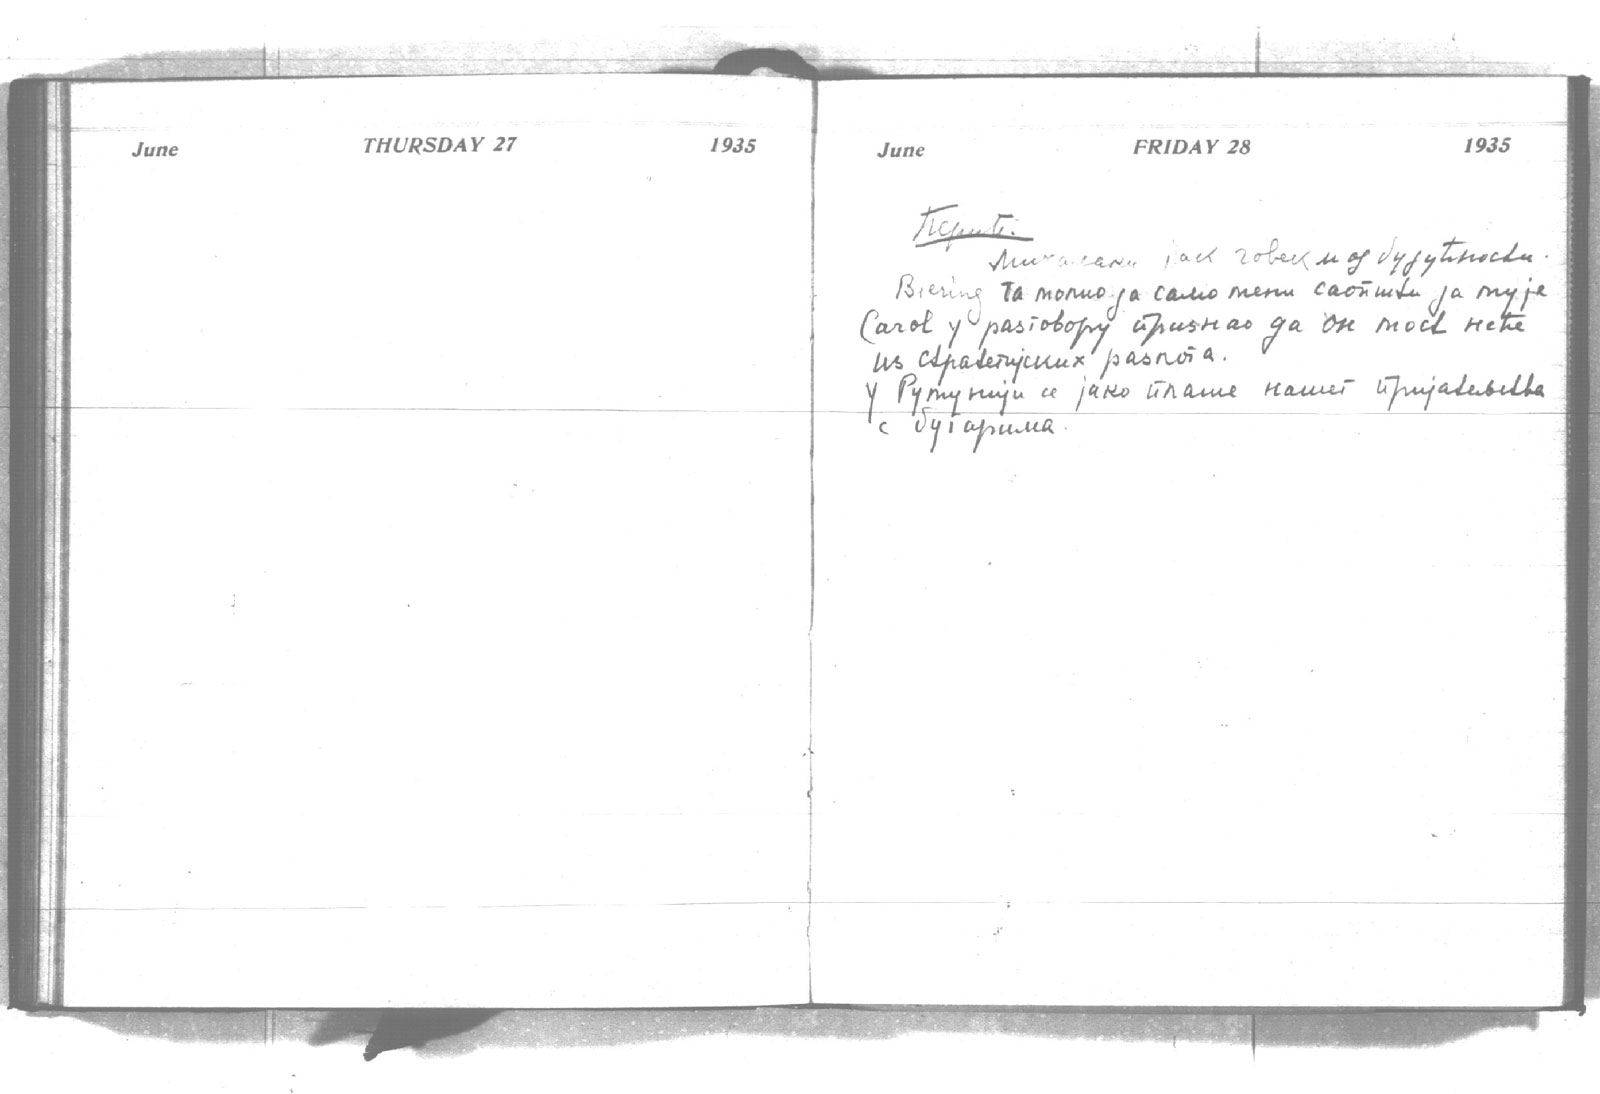 June THURSDAY 27 1935
June FRIDAY 28 1935
Перић.
јак човек и од будућности.
Biering га молио да само мени саопшти да му је
Carol у разговору признао да он мост неће
из стратегијских разлога.
У Румунији се јако плаше нашег пријатељства
с бугарима.